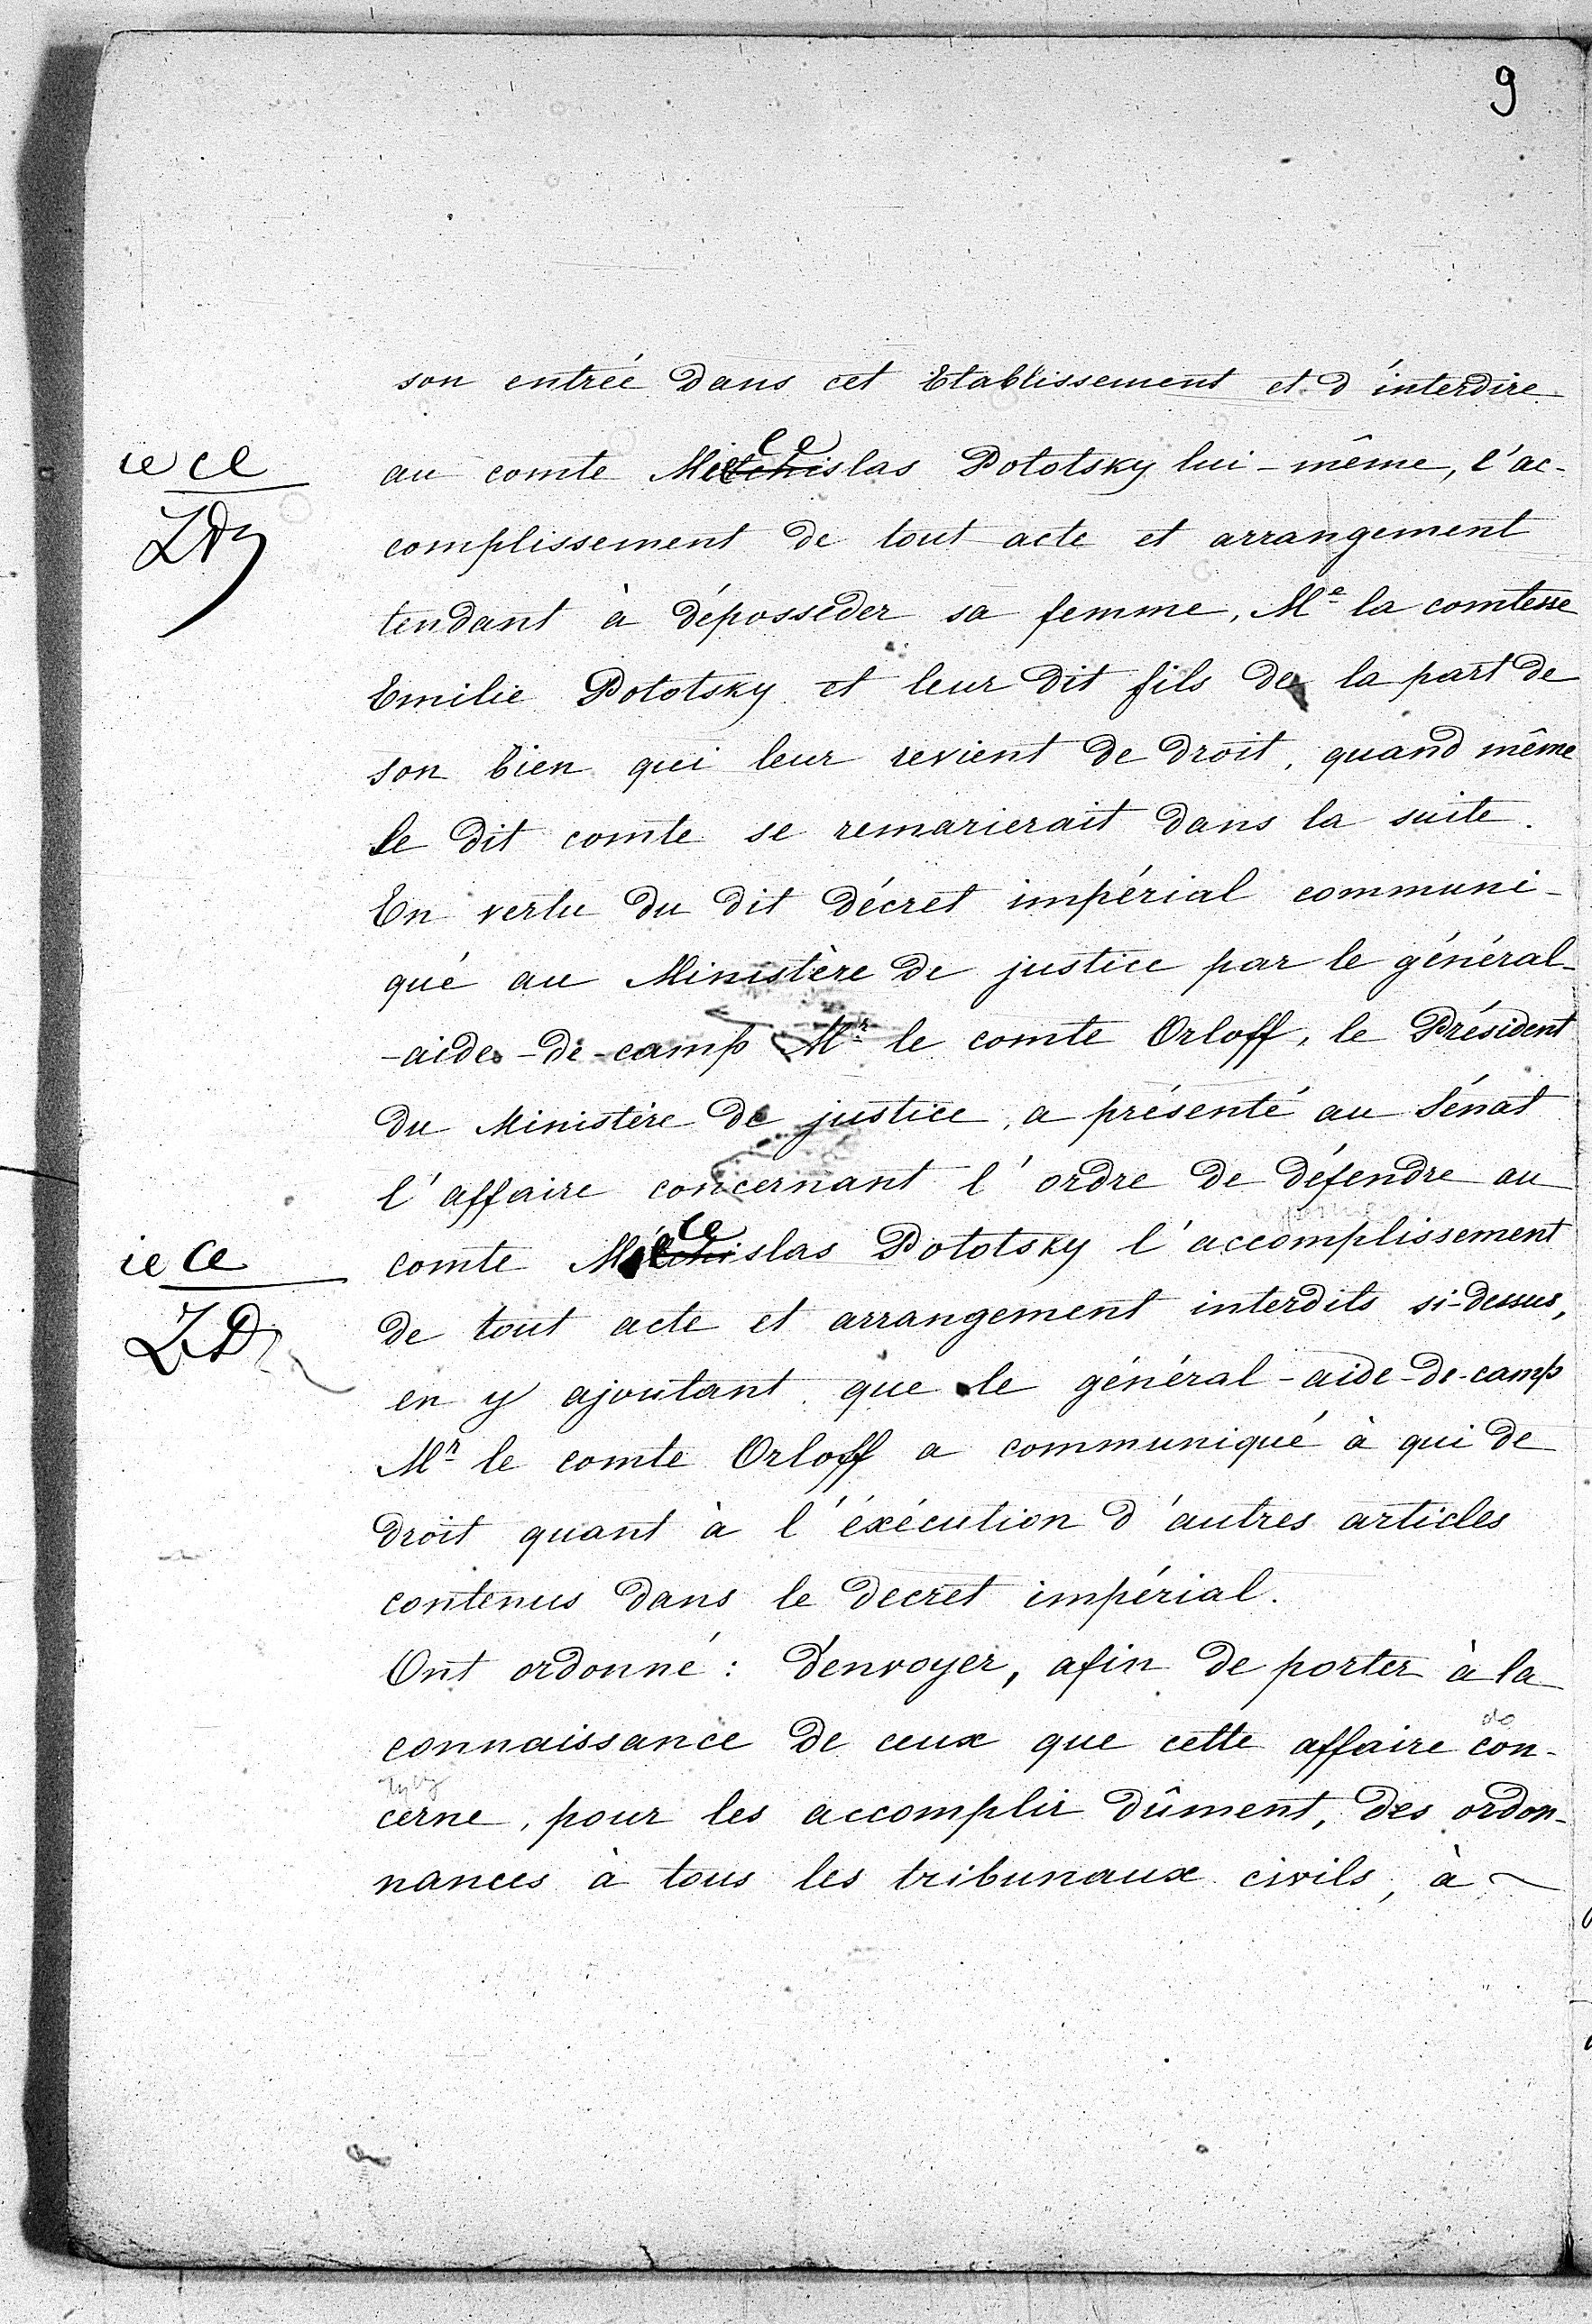 9
son entrée dans cet Etablissement et d'interdire
ie ce
au comte Miecislas Pototsky lui-même, l'ac-
complissement de tout acte et arrangement
tendant à déposséder sa femme, Me la comtesse
Emilie Pototsky et leur dit fils de la part de
son bien qui leur revient de droit, quand même
le dit comte se remarierait dans la suite.
En vertu du dit décret impérial communi-
qué au Ministère de justice par le général-
-aide-de-camp Mr le comte Orloff, le Président
du Ministère de justice, a présenté au Sénat
l'affaire concernant l'ordre de défendre au
ie ce
comte Miecislas Pototsky l'accomplissement
de tout acte et arrangement interdits si-dessus,
en y ajoutant que le général-aide-de-camp
Mr le comte Orloff a communiqué à qui de
droit quant à l'éxécution d'autres articles
contenus dans le decret impérial.
Ont ordonné: d'envoyer, afin de porter à la
connaissance de ceux que cette affaire con-
cerne, pour les accomplir dûment, des ordon-
nances à tous les tribunaux civils, à